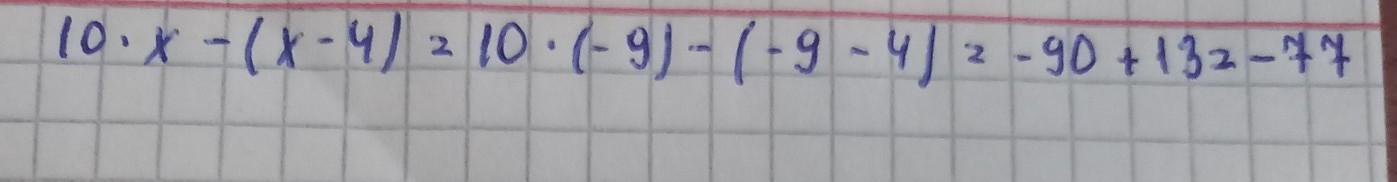 10 · x - (x - 4) = 10 · (-9) - (-9 - 4) = -90 + 13 = -77